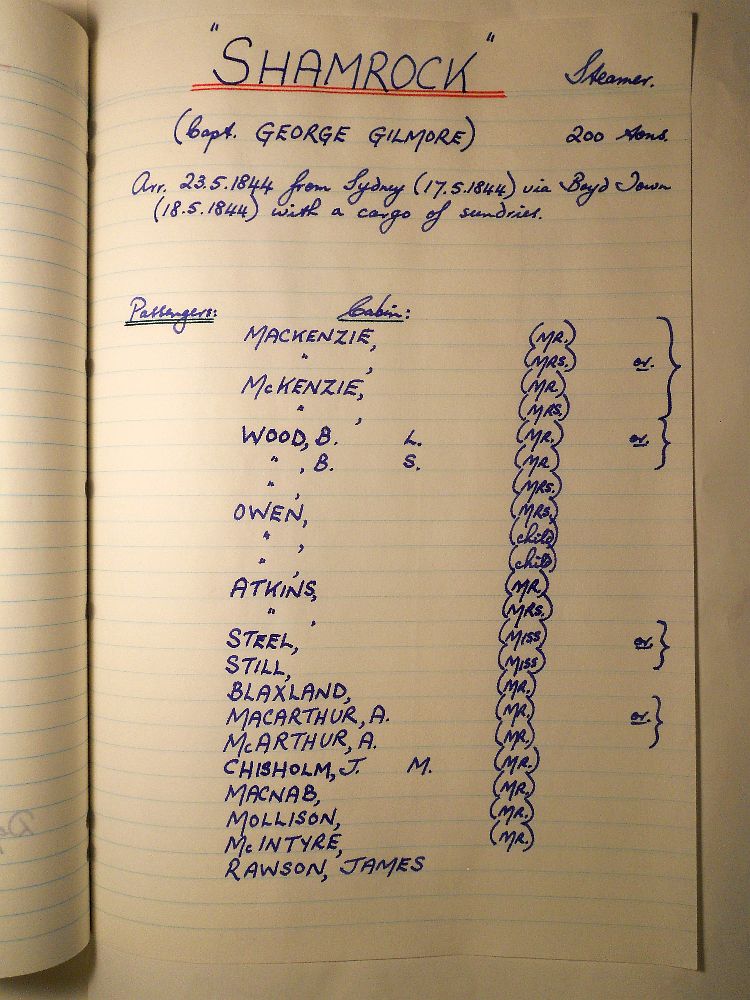 "SHAMROCK" Steamer.
(Capt. GEORGE GILMORE) 200 tons.
Arr. 23.5.1844 from Sydney (17.5.1844) via Boyd Town
(18.5.1844) with a cargo of sundries.
Passengers: Cabin:
MACKENZIE, (MR.)
" , (MRS.) or.
McKENZIE, (MR)
" , (MRS)
WOOD, B. L. (MR.) or.
" , B. S. (MR)
" , (MRS.)
OWEN, (MRS.)
" , (child)
" , (child)
ATKINS, (MR.)
" , (MRS.)
STEEL, (MISS) or.
STILL, (MISS)
BLAXLAND, (MR.)
MACARTHUR, A. (MR.) or.
McARTHUR, A. (MR.)
CHISHOLM, J. M. (MR.)
MACNAB, (MR.)
MOLLISON, (MR.)
McINTYRE, (MR.)
RAWSON, JAMES